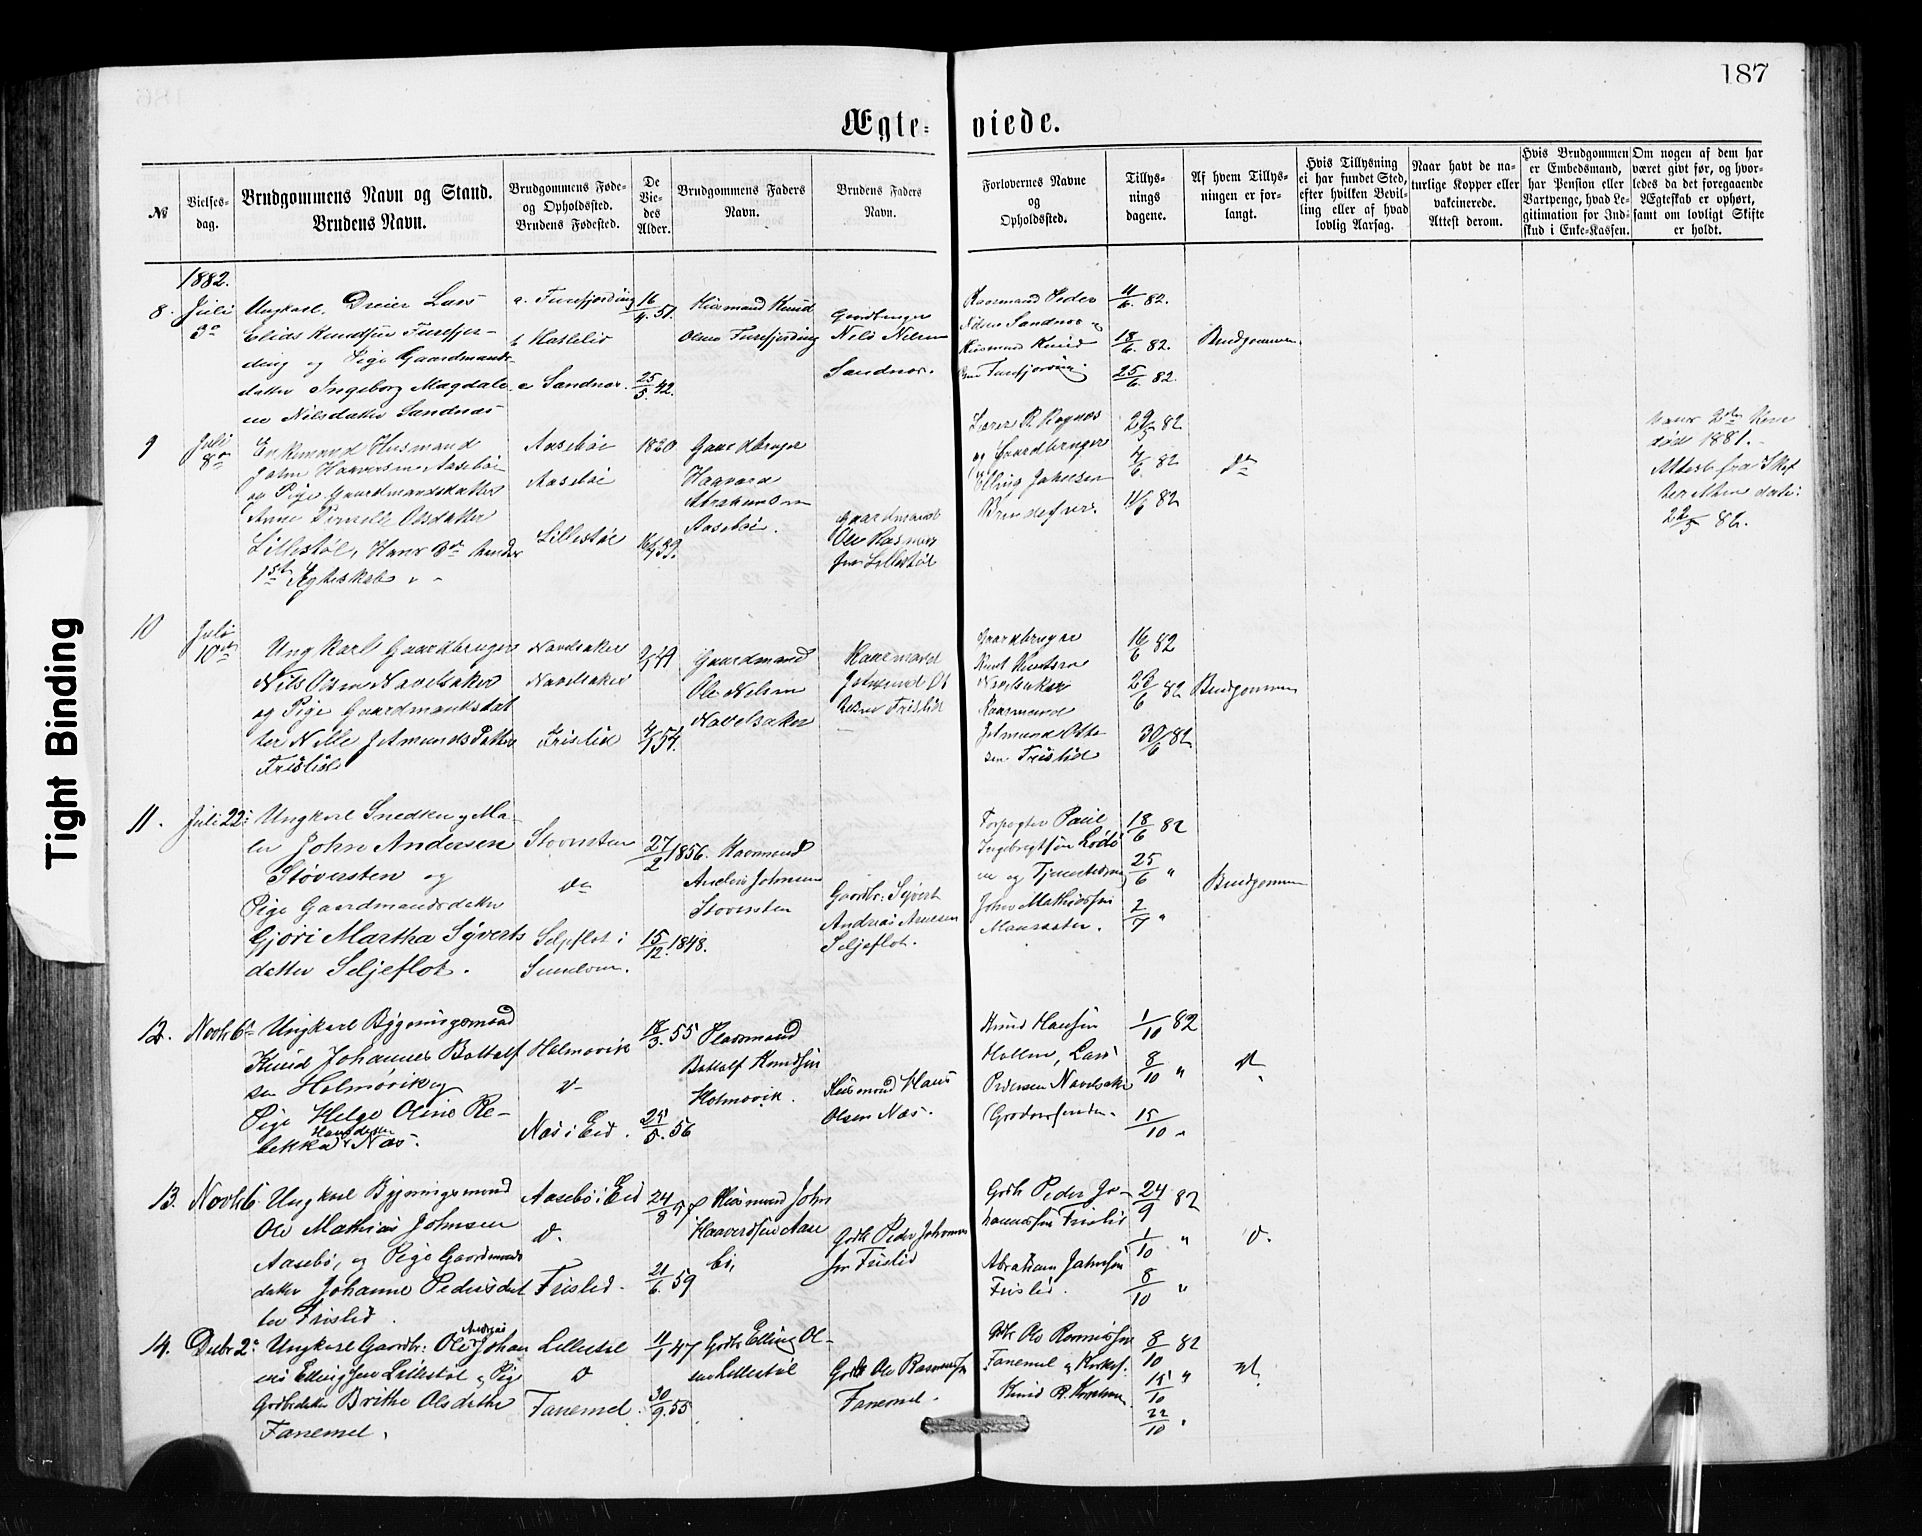 187
Ægte-viede.
Tight Binding
№
Vielses-
dag.
Brudgommens Navn og Stand.
Brudens Navn.
Brudgommens Føde-
og Opholdssted.
Brudens Fødested.
De
Vie-
des
Alder.
Brudgommens Faders
Navn.
Brudens Faders
Navn.
Forlovernes Navne
og
Opholdssted.
Tillys-
nings
dagene.
Af hvem Tillys-
ningen er for-
langt.
Hvis Tillysning
ei har fundet Sted,
efter hvilken Bevil-
ling eller af hvad
lovlig Aarsag.
Naar havt de na-
turlige Kopper eller
vakcinerede.
Attest derom.
Hvis Brudgommen
er Embedsmand,
har Pension eller
Vartpenge, hvad Le-
gitimation for Ind-
skud i Enke-Kassen.
Om nogen af dem har
været givt før, og hvor-
ledes da det foregaaende
Ægteskab er ophørt,
samt om lovligt Skifte
er holdt.
1882.
8. Juli
Ungkarl. Dreier Lars
Elias Knudsen Furefjor-
ding og Pige Gaardmands-
datter Ingeborg Magdale-
ne Nilsdatter Sandnæs
a. Furefjording
e Sandnæs.
16/4.
25/5.42.
Husmand Knud
Olsen Furefjording
Gaardbruger
Nils Nilsen
Sandnæs.
Kaarmand Peder
Nilsen Sandnæs
Husmand Knud
Furefjording.
11/6. 82.
18/6. 82.
25/6. 82.
Brudgommen.
9 Juli
Enkemand Husmand
John Haavardsen Aasebøe
og Pige Gaardmandsdatter
Anne Olsdatter
Lillestøl, Hans 3die hendes
1st Ægteskab
Aasebøe
Aasebøe
Lillestøl
1820
Gaardbruger
Haavard
Abrahamsen
Aasebøe.
Gaardmand
Ole Rasmus-
sen Lillestøl
og Gaardbruger
82
4/6 82
11/6 82
do
Hans 2den Kone
død 1881.
Attest fra Skif
82.
10 Juli
Ungkarl Gaardbruger
Nils Olsen Navelsaker
og Pige Gaardmandsdat
ter Nille Jetmunds Datter
Frislid
Navelsaker
Navelsaker
Frislid
54.
Gaardmand
Ole Nilsen
Navelsaker
Kaarmand
Jetmund Ot
tesen Frislid
Gaardbruger
Knut Knutsen
Navelsaker
Kaarmand
Jetmund Otte
sen Frislid
16/6 82
23/6 82
30/6 82
Brudgommen
11. Juli 22
Ungkarl Snedker og Ma-
ler John Andersen
Støversten og
Pige Gaardmandsdatter
Gjøri Martha Syverts
datter Seljeflot.
Støversten
do
Seljeflot i
27/2 1856.
15/12. 1848.
Kaarmand
Anders Johnsen
Støversten
Gaardbr: Syvert
Andreas
Seljeflot.
Forpagter Paul
Ingebrigtsen
John Mathiassen
18/6 82
25/6 "
2/7 "
Brudgommen
12. Novbr 6
Ungkarl Bygningsmand
Knud Johannes Bottolf
sen Holmøvik og
Pige Helge Oline Re-
bekka Hansdatter Næs.
Holmøvik
Næs i Eid.
18/3. 55
56
Plasmand
Bottolf Knudsen
Holmøvik.
Husmand Hans
Olsen Næs.
Knud Hansen
Lars
Pedersen Navelsaker
1/10 82
8/10 "
15/10 "
13. Novbr 6
Ungkarl Bygningsmand
Ole Mathias Johnsen
Aasebø, og Pige Gaardmands
datter Johanne Pedersdat
ter Frislid.
Aasebø i Eid
Frislid.
24/8
21/6. 59
Husmand John
Haavardsen Aase
bø,
Gdbr Peder Johannes
sen Frislid
Gdbr Peder Jo-
hannessen Frislid
Abraham Johnsen
Frislid.
24/9 82
1/10 "
8/10 "
14. Decbr 2
Ungkarl Gaardbr: Ole Andreas Johan
nes Ellingsen Lillestøl og Pige
Gdbrdatter Brithe Olsdatter
Fanemel.
Lillestøl
Fanemel.
11/1 47
30/9. 55
Gdbr Elling Ol-
sen Lillestøl
Gdbr Ole Rasmussen
Fanemel.
Gdbr Ole Rasmussen
Fanemel og Kirkes.
Knud R.
8/10 82
15/10 "
22/10 "